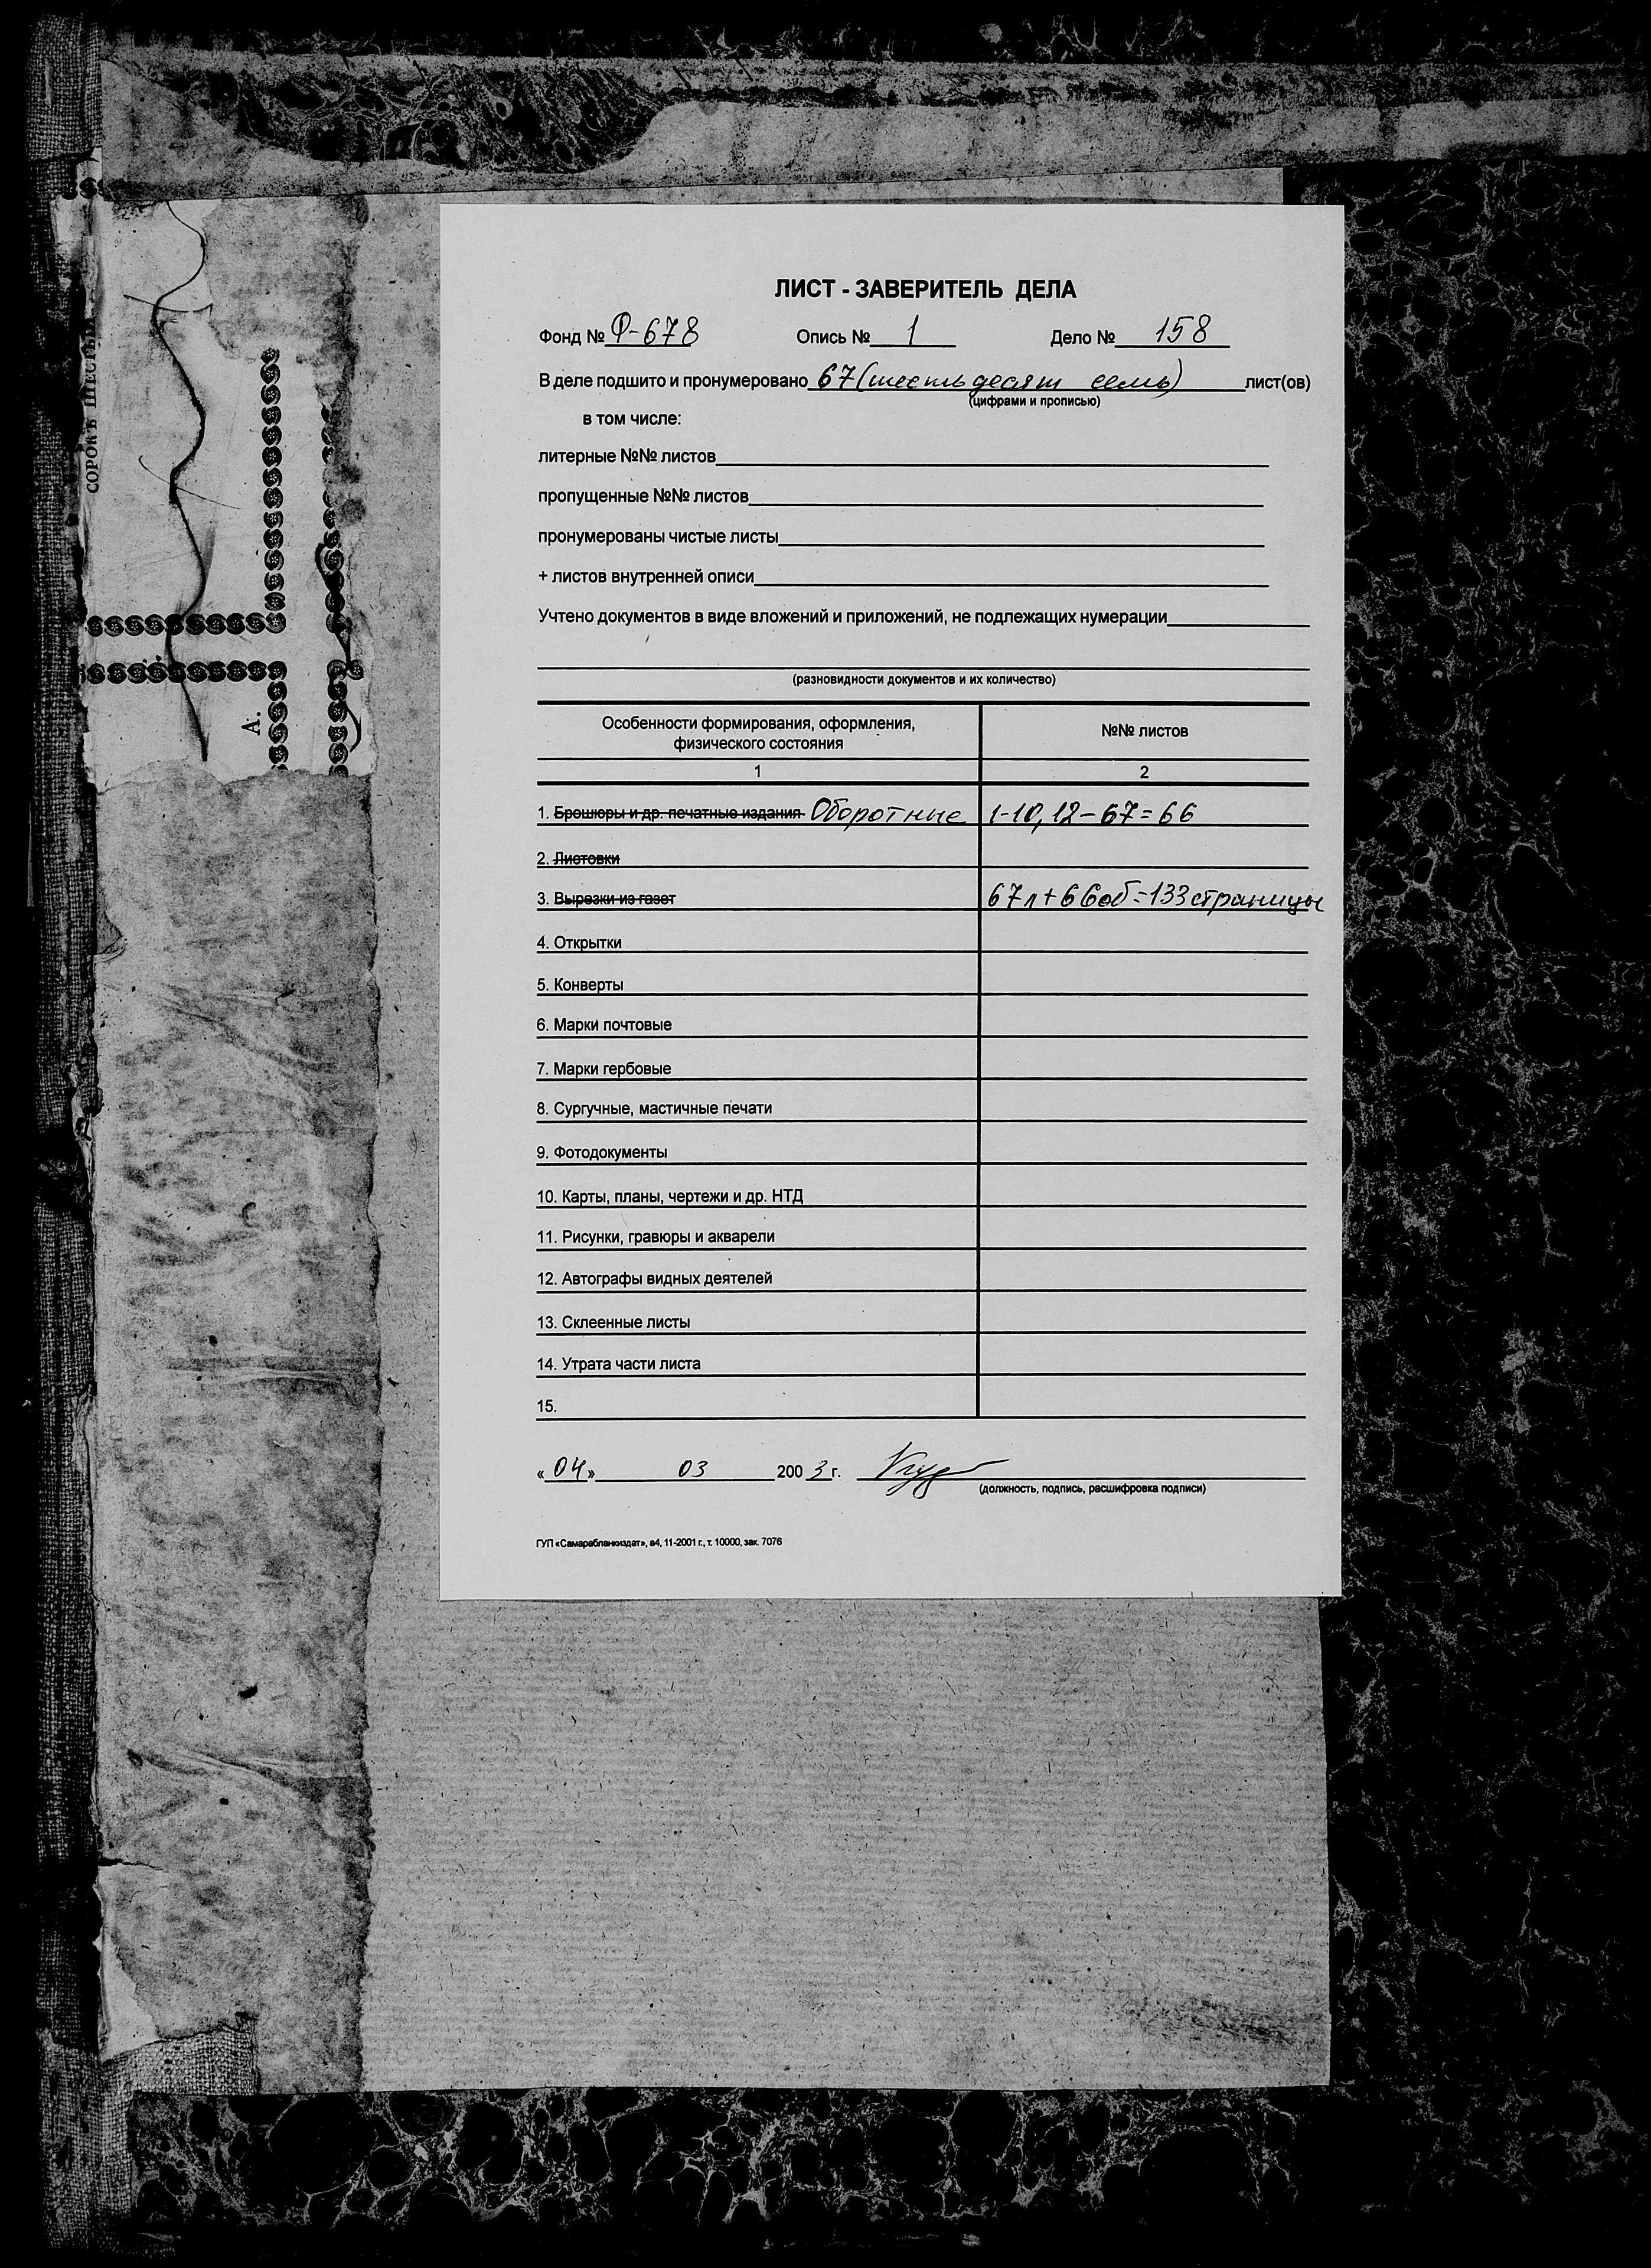 ЛИСТ - ЗАВЕРИТЕЛЬ ДЕЛА
Фонд № Ф-678 Опись № 1 Дело № 158
В деле подшито и пронумеровано 67 (шестьдесят семь) лист(ов)
(цифрами и прописью)
в том числе:
литерные №№ листов
пропущенные №№ листов
пронумерованы чистые листы
+ листов внутренней описи
Учтено документов в виде вложений и приложений, не подлежащих нумерации
(разновидности документов и их количество)
Особенности формирования, оформления, №№ листов
физического состояния
1 2
1. Брошюры и др. печатные издания Оборотные 1-10, 12-67=66
2. Листовки
3. Вырезки из газет 67л+66об=133страницы
4. Открытки
5. Конверты
6. Марки почтовые
7. Марки гербовые
8. Сургучные, мастичные печати
9. Фотодокументы
10. Карты, планы, чертежи и др. НТД
11. Рисунки, гравюры и акварели
12. Автографы видных деятелей
13. Склеенные листы
14. Утрата части листа
15.
«04» 03 2003 г.
(должность, подпись, расшифровка подписи)
ГУП «Самарабланкиздат», а4, 11-2001 г., т. 10000, зак. 7076
СОРОКЪ
А.